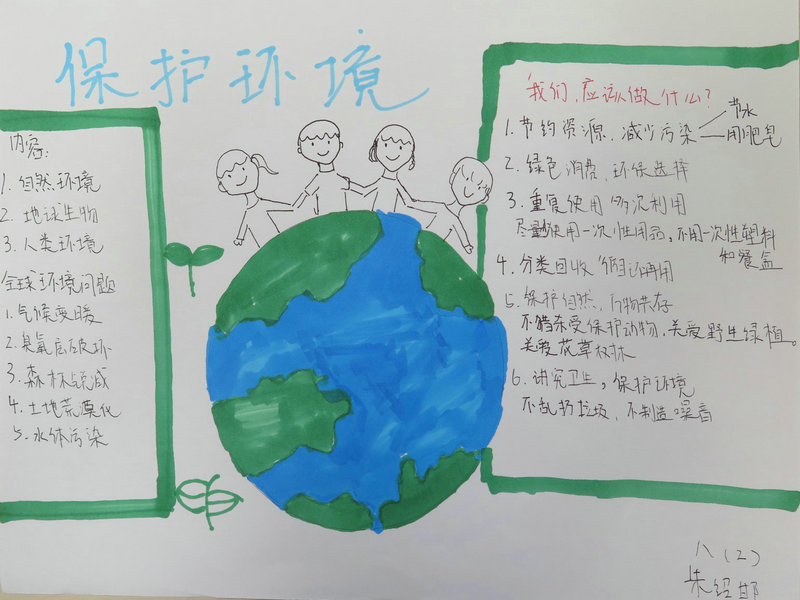 保护环境
内容:
1. 自然环境
2. 地球生物
3. 人类环境
全球环境问题
1. 气候变暖
2. 臭氧层破环
3. 森林锐减
4. 土地荒漠化
5. 水体污染
我们应该做什么?
1. 节约资源、减少污染
节水
用肥皂
2. 绿色消费、环保选择
3. 重复使用 多次利用
尽量使用一次性用品,不用一次性塑料
和餐盒
4. 分类回收 循环再用
5. 保护自然,万物共存
不猎杀受保护动物,关爱野生绿植。
关爱花草树林
6. 讲究卫生,保护环境
不乱扔垃圾、不制造噪音
八(2)
朱